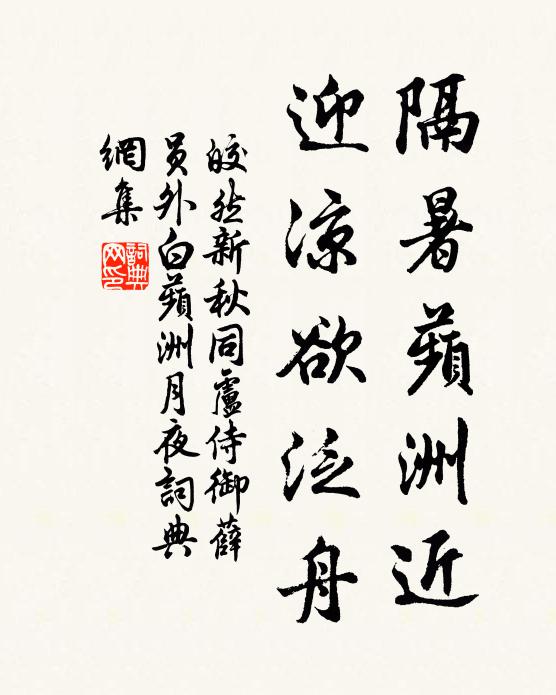 隔暑蘋洲近
迎涼欲泛舟
皎然新秋同盧侍御薛
員外白蘋洲月夜詞典
網集
詞典
网印